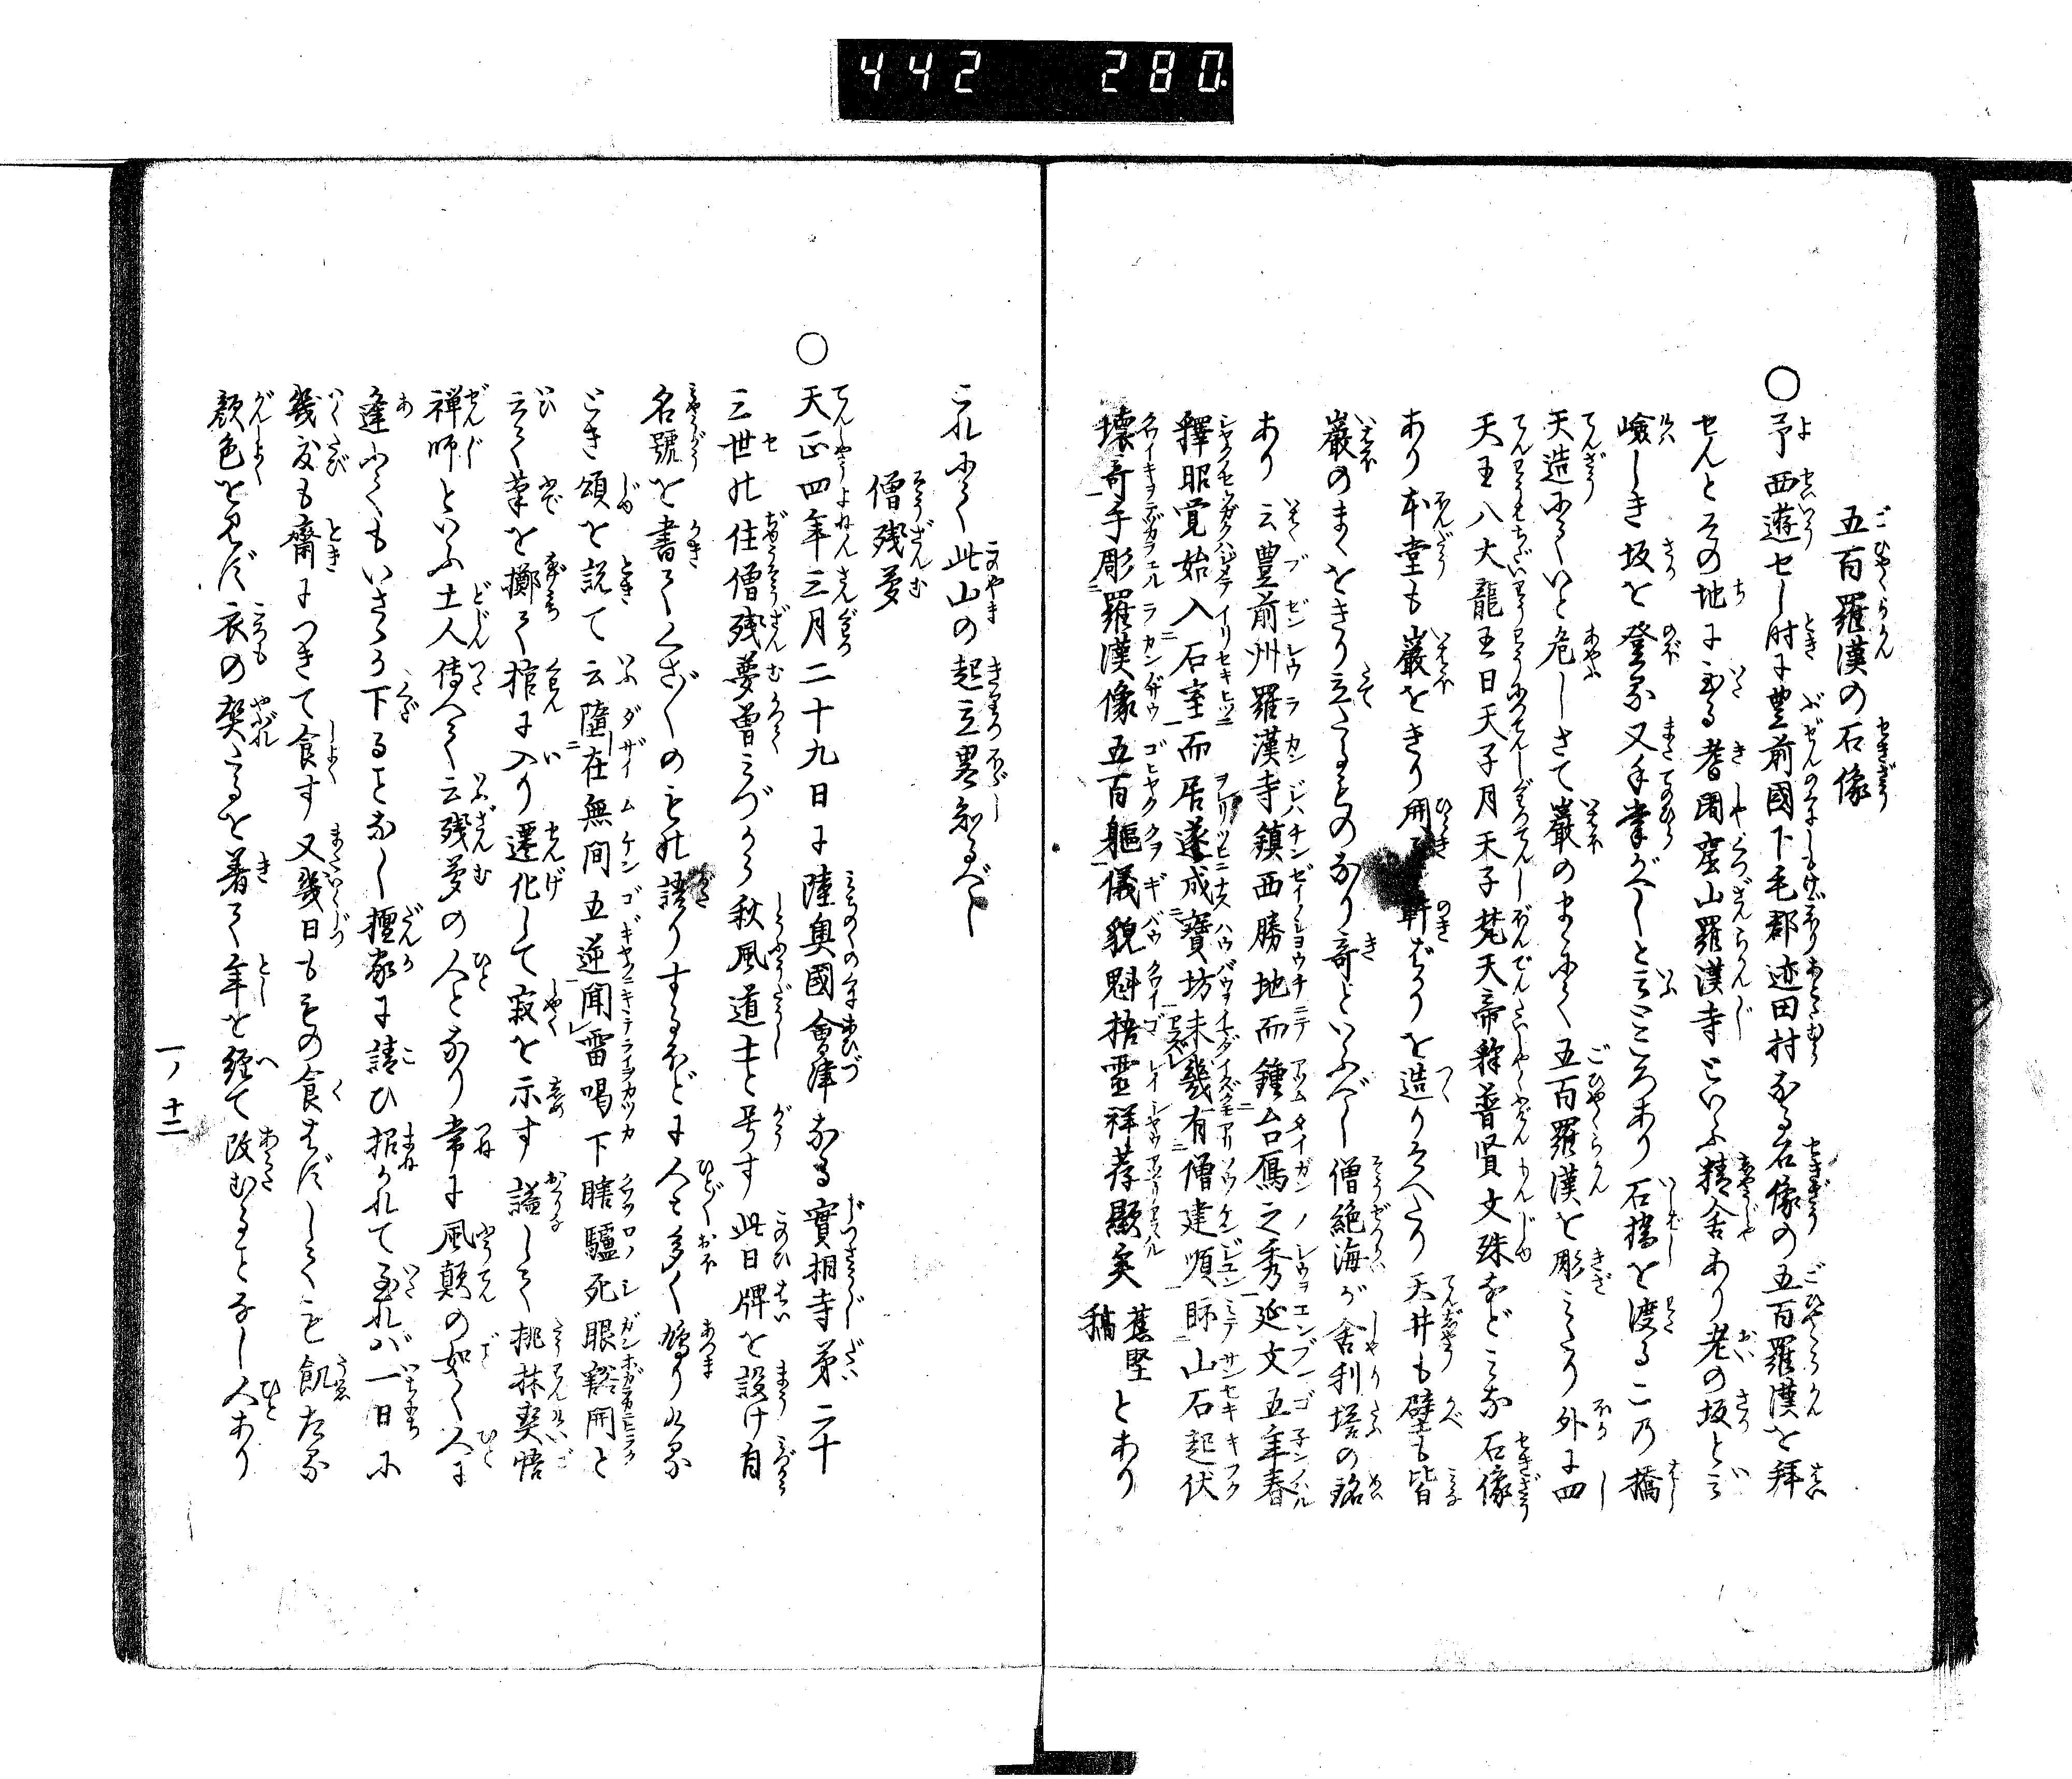 442 280
五百羅漢の石像
○予西遊せし時に豊前國下毛郡迹田村なる石像の五百羅漢を拝
せんとその地に至る耆闍崛山羅漢寺といふ精舎あり老の坂とい
嶮しき坂を登る又手掌がへしと言ところあり石橋を渡るこの橋
天造にていと危しさて巌のまゝにて五百羅漢を彫みたり外に四
天王八大龍王日天子月天子梵天帝釈普賢文殊などみな石像
あり本堂も巌をきり開て軒ばかりを造りそへたり天井も壁も皆
巌のまゝをきり立たるものなり奇といふべし僧絶海が舎利塔の銘
あり云豊前州羅漢寺鎮西勝地而鍾台鴈之秀延文五年春
釋昭覚始入石室而居遂成寶坊未幾有僧建順眎山石起伏
壊奇手彫羅漢像五百軀儀貌魁梧霊祥荐顕矣蕉堅稿とあり
これにて此山の起立畧知るべし
僧残夢
○天正四年三月二十九日に陸奥國會津なる實相寺第二十
三世の住僧残夢曽みづから秋風道士と号す此日牌を設け自
名號を書てくさ〴〵のもの語りするほどに人々多く鳩り来る
とき頌を説て云墮在無間五逆聞雷喝下瞎驢死眼豁開と
云て筆を擲て棺に入り遷化して寂を示す謚して桃林契悟
禅師といふ土人傳へて云残夢の人となり常に風顛の如く人に
逢にてもいさゝか下ることなし檀家に請ひ招かれて至れバ一日に
幾度も齋につきて食す又幾日もものを食はずしても飢たる
顔色を見ず衣の契たるを着て年を經て改むることなし人あり
一ノ十二